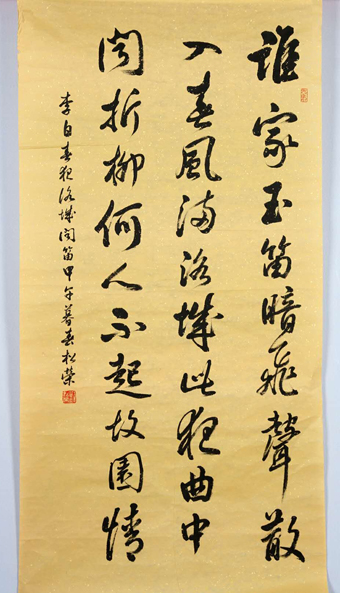 誰家玉笛暗飛聲散
入春風滿洛城此夜曲中
聞折柳何人不起故園情
李白春夜洛城聞笛甲午暮春松榮